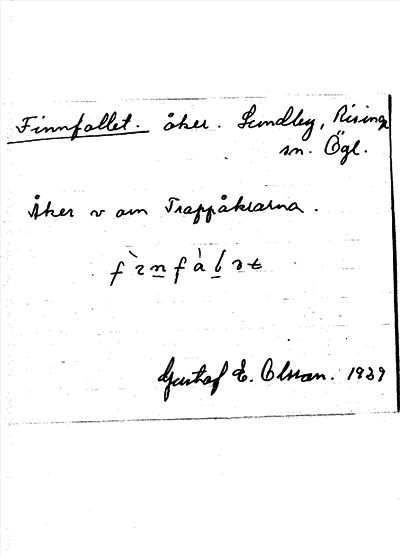 Finnfallet. åker. Lundby, Risinge
sn. Ögl.
Åker v om Trappåkrarna.
Gustaf E. Olsson. 1939